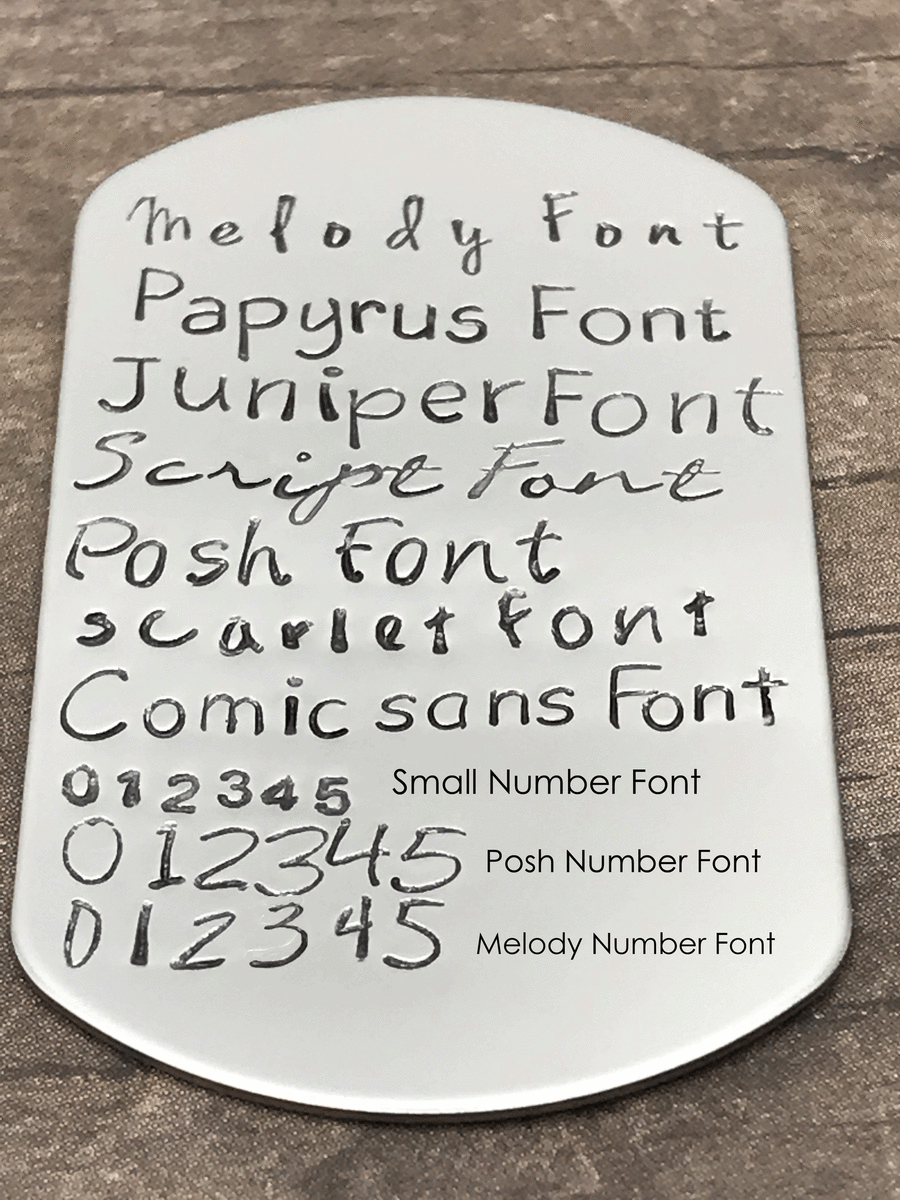 Melody Font
Papyrus Font
Juniper Font
Script Font
Posh Font
scarlet font
Comic sans Font
012345 Small Number Font
012345 Posh Number Font
012345 Melody Number Font